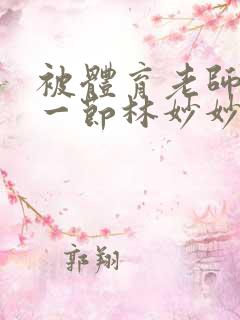 被體育老師
一節林妙妙
郭翔